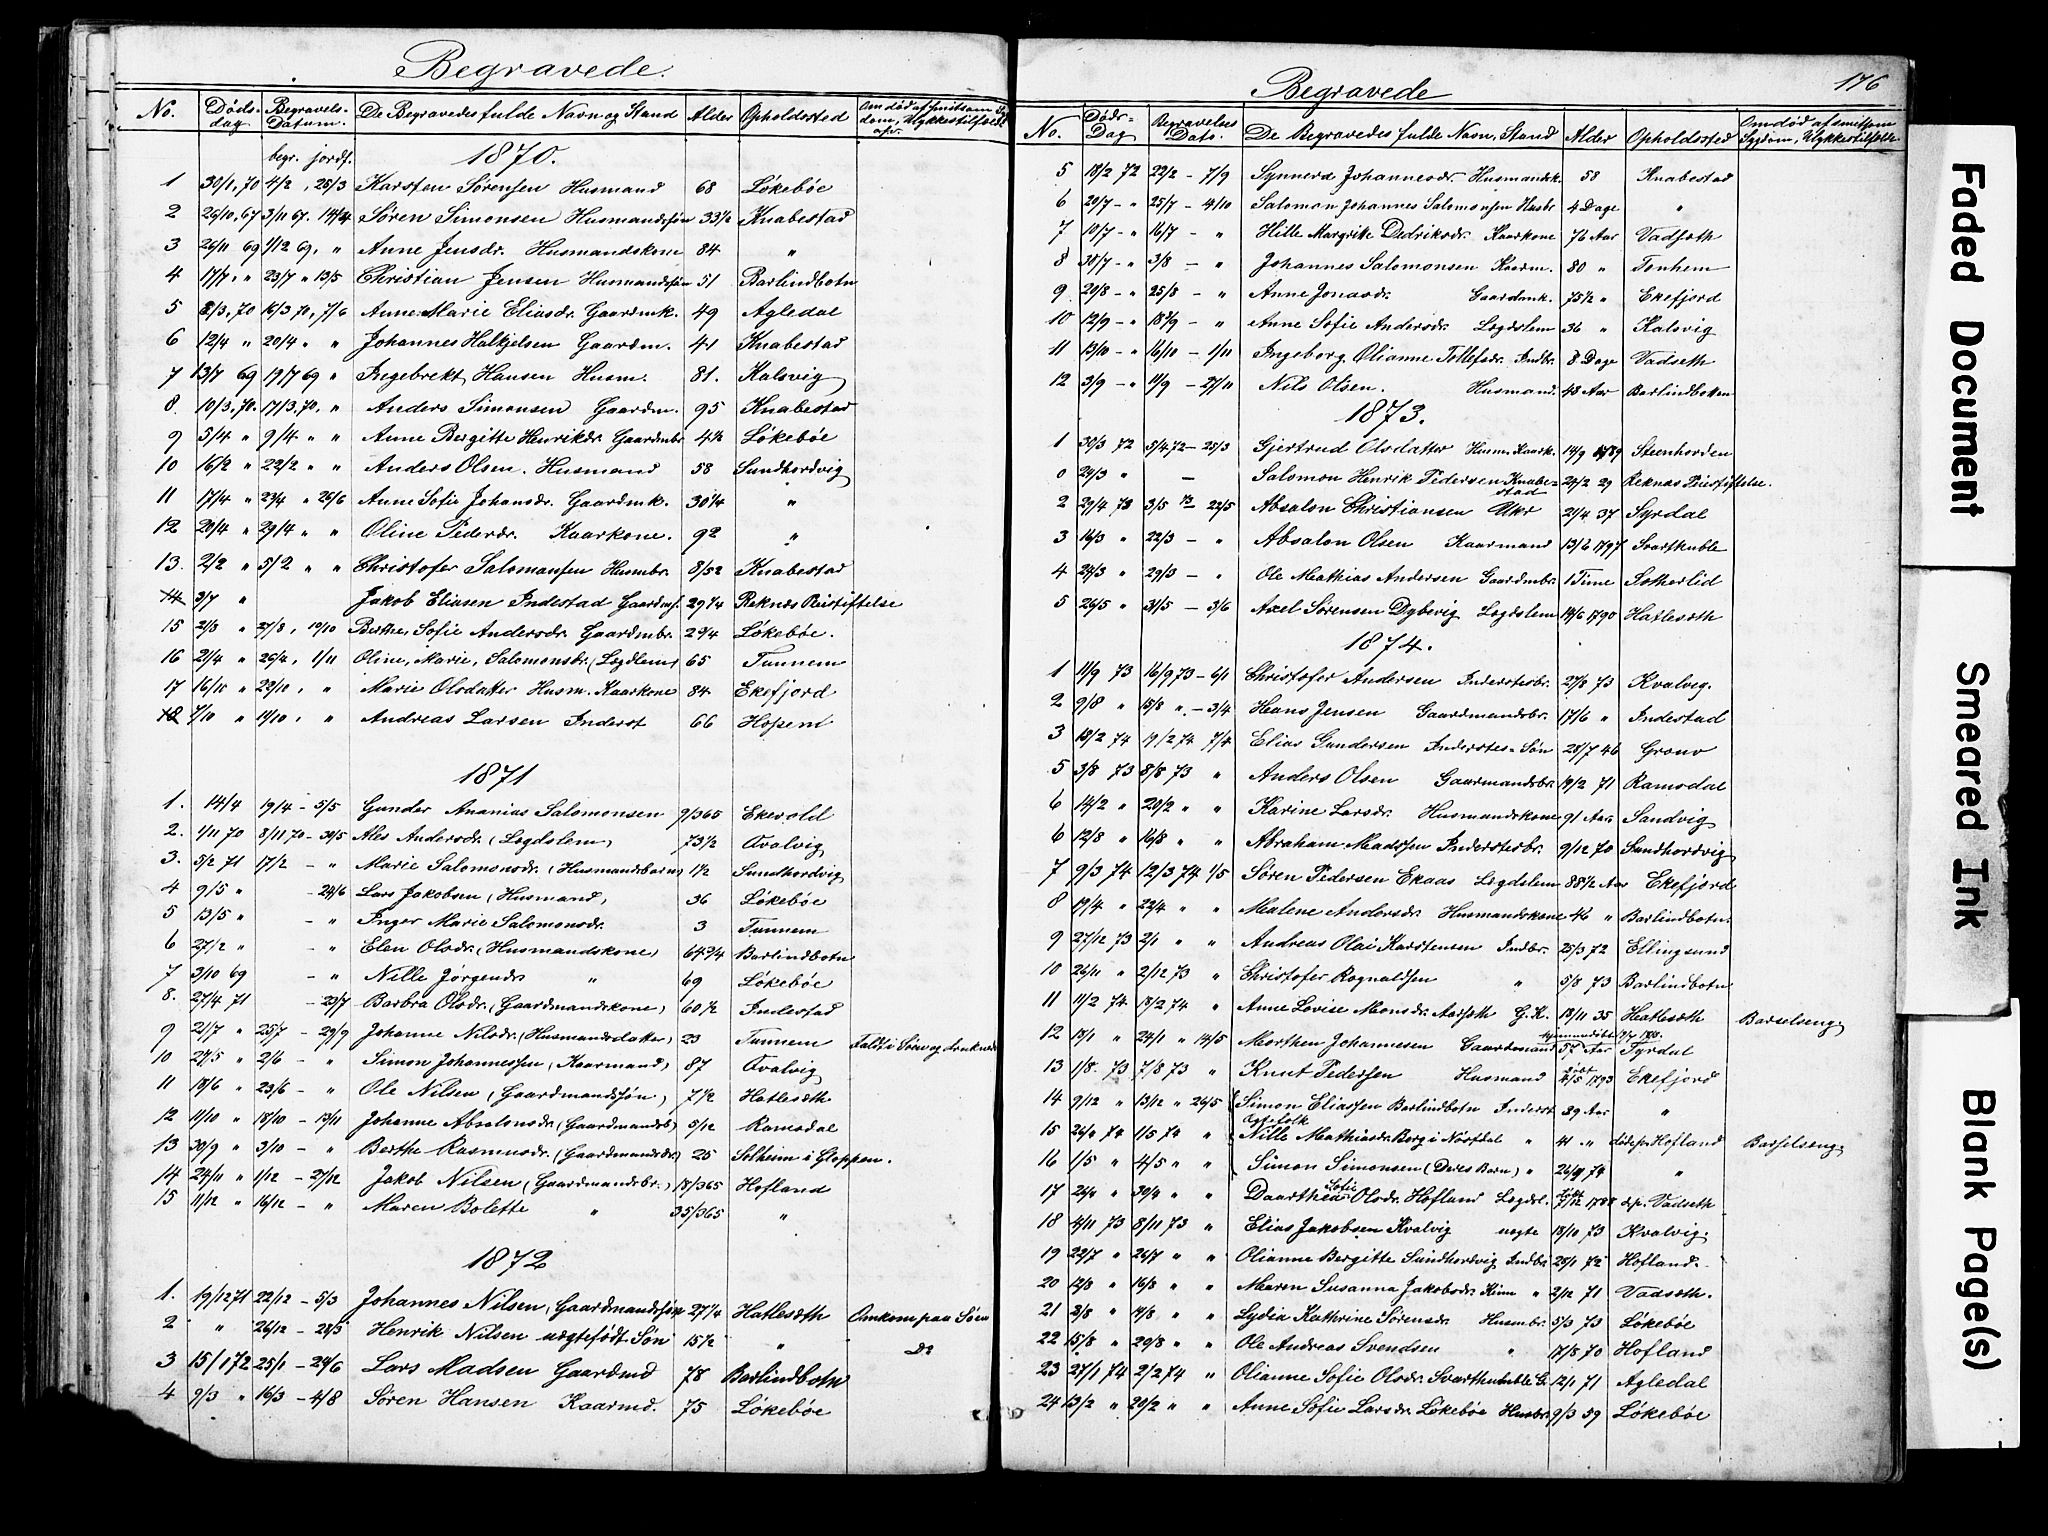 Begravede.
No. Døds-dag Begravels-Datum. De Begravedes fulde Navn og Stand Alder Opholdssted Om død af smitsom Sygdom, Ulykkestilfælde
begr. jordf. 1870.
1 30/1, 70 4/2, 25/3 Karsten Sørensen Husmand 68 Løkebøe
2 26/10, 67 3/11 67. 14/4 Søren Simonsen Husmandssøn 33 1/2 Knabestad
3 26/11 69 1/12 69, " Anne Jensdr. Husmandskone 84 "
4 17/7, " 23/7 " 13/5 Christian Jensen Husmandssøn 51 Barlindbotn
5 8/3, 70 16/3 70, 7/6 Anne Marie Eliasdr. Gaardmk. 49 Agledal
6 12/4 " 20/4 " " Johannes Halkjelsen Gaardm. 41 Knabestad
7 13/7 69 19/7 69 " Ingebrekt Hansen Husm. 81. Kalsvig
8. 10/3, 70. 17/3, 70, " Anders Simonsen Gaardm. 95 Knabestad
9 5/4 " 9/4 " " Anne Bergitte Henriksdr. Gaardmbr 4 1/2 Løkebøe
10 16/2 " 22/2 " " Anders Olsen. Husmand 58 Sundhordvig
11 17/4 " 23/4 " 26/6 Anne Sofie Johansdr. Gaardmk. 30 1/4 "
12 20/4 " 29/4 " " Oline Pedersdr. Kaarkone. 92 "
13. 2/2 " 5/2 " " Christofer Salomonsen Husmbr. 8/52 Knabestad
14 3/7 " Jakob Eliasen Indestad Gaardms. 29 1/4 Reknæs Pleistiftelse
15 21/8 " 27/8, 19/10 Berthe, Sofie Andersdr. Gaardmbr. 2 3/4 Løkebøe.
16 21/4 " 26/4, 1/11 Oline, Marie, Salomonsdr. (Lægdlem) 65 Tunnem
17 16/10 " 22/10, " Marie Olsdatter Husm. Kaarkone 84 Ekefjord
18 7/10 " 14/10, " Andreas Larsen Inderst 66 Hopem
1871
1. 14/4 19/4 - 5/5 Gunder Ananias Salomonsen 9/365 Ekevold
2. 1/11 70 8/11 70 - 30/5 Ales Andersdr. (Lægdslem) 73 1/2 Qvalvig
3. 5/2 71 17/2 - " Marie Salomonsdr. (Husmandsbarn) 1 1/2 Sundhordvig
4 9/5 " - 24/6 Lars Jakobsen (Husmand) 36 Løkebøe
5 13/5 " - " Inger Marie Salomonsdr. 3 Tunnem
6 27/2 " - " Elen Olsdr. (Husmandskone) 64 3/4 Barlindbotn
7 3/10 69 - " Nille Jørgensdr. " 69 Løkebøe
8. 27/4 71 - 23/7 Barbra Olsdr. (Gaardmandskone) 60 1/2 Indestad
9 21/7 " 25/7 - 29/9 Johanne Nilsdr. (Husmandsdatter) 23 Tunnem Faldt i Søen og druknede
10 27/5 " 2/6 - " Simon Johannessen (Kaarmand) 87 Qvalvig
11 18/6 " 23/6 - " Ole Nilsen (Gaardmandssøn) 7 1/2 Hatlesæth
12 11/10 " 18/10 - 13/11 Johanne Absalonsdr. (Gaardmandsb) 5/12 Ramsdal
13 30/9 " 3/10 - " Berthe Rasmusdr. (Gaardmandsdr.) 25 Solheim i Gloppen.
14 24/11 " 1/12 - 27/12 Jakob Nilsen (Gaardmandsbr.) 18/365 Hofland
15 11/12 " 16/12 - " Maren Bolette " 35/365 "
1872
1. 19/12 71 22/12 - 5/3 Johannes Nilsen, Gaardmandssøn 27 1/4 Hatlesæth Omkom paa Søen
2 " 26/12 - 28/3 Henrik Nilsen uægtefødt Søn 15 1/2 " Do
3 15/1 72 25/1 - 24/6 Lars Madsen Gaardmd 78 Barlindbotn
4 9/3 " 16/3 - 4/8 Søren Hansen Kaarmd. 75 Løkebøe
Begravede 176
No. Døds-Dag Begravelses Dato. De Begravedes fulde Navn, Stand Alder Opholdssted Om død af smitsom Sygdom, Ulykkestilfælde
5 18/2 72 22/2 - 7/9 Synnerd Johannesdr. Husmandsk. 58 Knabestad
6 20/7 - " 25/7 - 4/10 Salomon Johannes Salomonsen Husbr 4 Dage "
7 10/7 - " 16/7 - " Hille Margrite Dedriksdr. Kaarkone 76 Aar Vadsæth
8 30/7 - " 3/8 - " Johannes Salomonsen Kaarm. 80 " Tonhem
9 20/8 - " 25/8 - " Anne Jonasdr. Gaardmk. 75 1/2 " Ekefjord
10 12/9 - " 18/9 - " Anne Sofie Andersdr. Lægdslem 36 " Kalsvig
11 13/10 - " 16/10 - 1/11 Ingeborg Olianne Tollefsdr. Indbr. 8 Dage Vadsæth
12 3/9 - " 11/9 - 27/11 Nils Olsen. Husmand. 48 Aar Barlindbotten
1873.
1 30/3 72 5/4 72 - 25/3 Gjertrud Olsdatter Husm. Kaark. 14/9 1789 Steenhorden
0 24/3 " - Salomon Henrik Pedersen Knabe-stad 24/2 29 Reknæs Pleistiftelse.
2 29/4 73 3/5 73 22/5 Absalon Christiansen Ukr 21/4 37 Syrdal
3 16/3 " 22/3 - " Absalon Olsen Kaarmand 13/6 1797 Svartkuble
4 24/3 " 29/3 - " Ole Mathias Andersen Gaardmbr. 1 Time Sotherlid
5 26/5 " 31/5 - 3/6 Axel Sørensen Dybevig Lægdslem 14/6 1790 Hatlesæth
1874.
1 11/9 73 16/9 73 - 6/1 Christofer Andersen Inderstesbr. 27/8 73 Kvalvig.
2 9/8 " 15/8 " - 3/4 Hans Jensen Gaardmandsbr. 17/6 " Indestad
3 13/2 74 19/2 74 7/4 Elias Gundersen Inderstes-Søn 28/7 46 Grønv
5 3/8 73 8/8 73 " Anders Olsen Gaarmandsbr. 19/2 71 Ramsdal
6 14/2 " 20/2 " " Karine Larsdr. Husmandskone 91 Aar Sandvig
6 12/8 " 16/8 " " Abraham Madssen Inderstesbr. 9/12 70 Sundhordvig
7 9/3 74 12/3 74 1/5 Søren Pedersen Ekaas Lægdslem 88 1/2 Aar Ekefjord
8 19/4 " 22/4 " " Malene Andersdr. Husmandskone 46 " Barlindbotn.
9 27/12 73 2/1 " " Andreas Olai Karstensen Indbr. 25/3 72 Ellingsund
10 26/11 " 2/12 73 " Christofer Rognaldsen " 5/8 73 Barlindbotn
11 11/2 74 18/2 74 " Anne Lovise Monsdr. Aarsæth G.K. 19/11 35 Hatlesæth Barselseng
12 18/1 " 24/1 " 14/5 Morthen Johannesen Gaardmand 57 Aar Tyrdal
13 1/8 73 7/8 73 " Knut Pedersen Husmand født 4/5 1793 Ekefjord
14 9/12 " 13/12 " 26/5 Simon Eliassen Barlindbotn Inderst 39 Aar "
Ægtefolk
15 26/4 74 1/5 74 " Nille Mathiasdr. Berg i Nordfdal " 41 " døde på Hofland Barselseng
16 1/5 " 4/5 " " Simon Simonsen (Deres Barn) " 26/4 74 "
17 26/4 " 30/4 " " Daarthea Sofie Olsdr. Hofland Lægdsl. født 7/12 1788 d.p. Vadsæth
18 4/11 73 8/11 73 " Elias Jakobsen Kvalvig uægte 18/10 73 Kvalvig.
19 22/7 " 26/7 " " Olianne Bergitte Sundhordvig Indbr 25/1 72 Hofland.
20 12/8 " 16/8 " " Maren Susanna Jakobsdr. Kinn " 2/12 71 Vadsæth.
21 3/8 " 14/8 " " Lydia Kathrine Sørensdr. Husmbr. 5/3 73 Løkebøe
22 15/8 " 20/8 " " Ole Andreas Svendsen " 17/8 70 Hofland
23 27/1 74 2/2 74 " Olianne Sofie Olsdr. Svartkuble G. 12/1 71 Agledal
24 13/2 " 20/2 " " Anne Sofie Larsdr. Løkebøe Husbr. 9/3 59 Løkebøe
Faded Document
Smeared Ink
Blank Page(s)